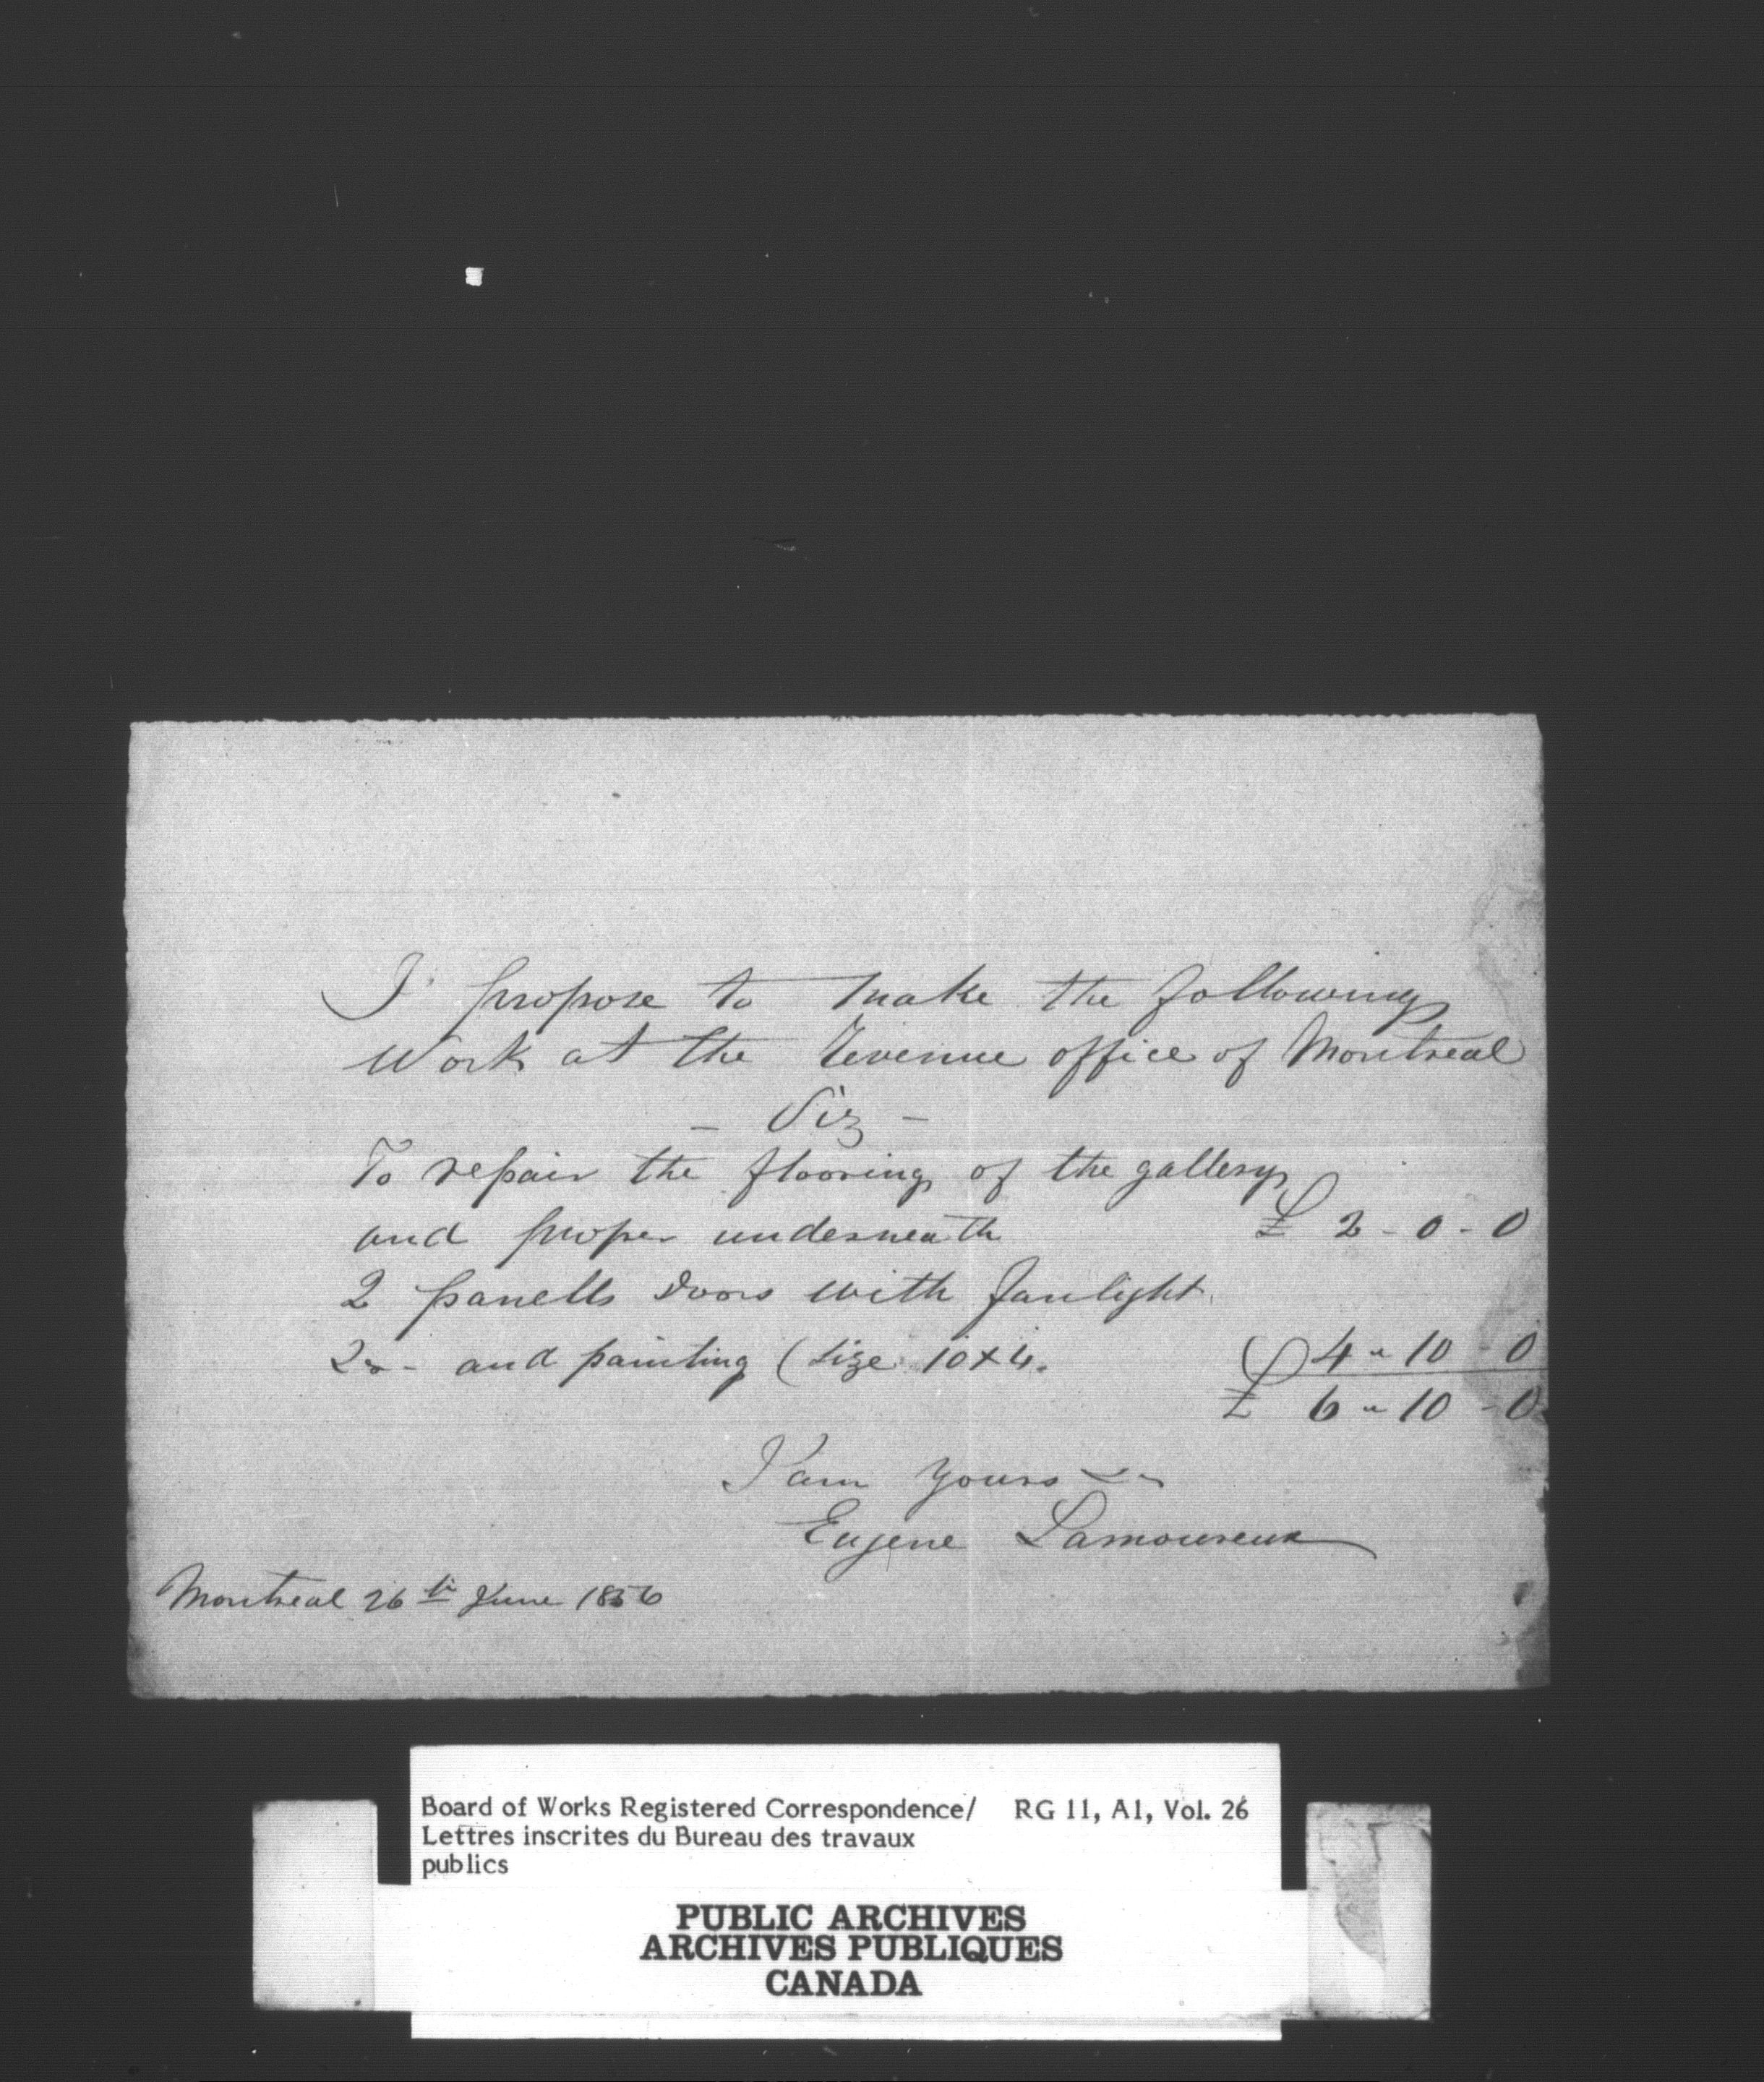 I propose to make the following
Work at the Revenue office of Montreal
- Viz -
To repair the flooring of the gallery
and proper underneath £ 2 - 0 - 0
2 panells Doors with fanlight
and painting (size 10 x 4. 4 " 10 - 0
£ 6 " 10 - 0
I am yours
Eugene Lamoureux
Montreal 26th June 1856
Board of Works Registered Correspondence/ RG 11, A1, Vol. 26
Lettres inscrites du Bureau des travaux
publics
PUBLIC ARCHIVES
ARCHIVES PUBLIQUES
CANADA